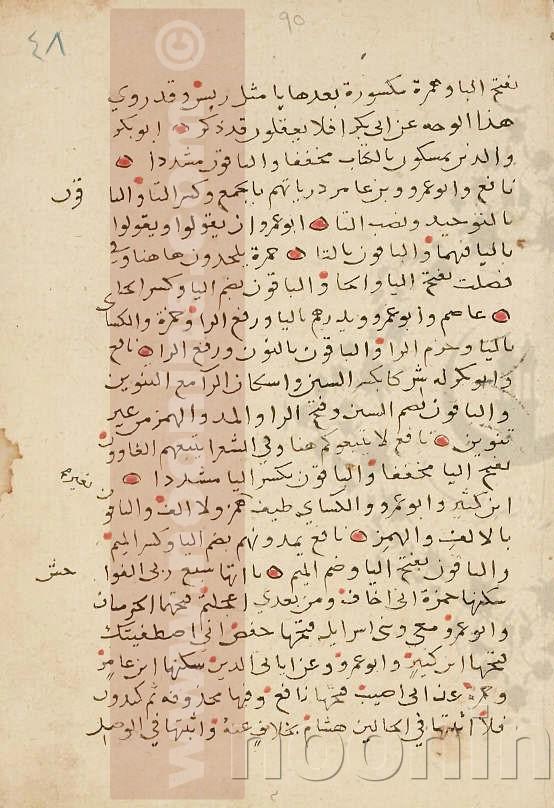 ٩٥
٤٨
بفتح اليا وهمزة مكسورة بعدها يا مثل ريس وقد روي
هذا الوجه عن ابي بكر افلا يعقلون قد ذكر ابو بكر
والذين يمسكون بالكتاب مخففا والباقون مشددا
نافع وابو عمرو وبن عامر ذرياتهم بالجمع وكسر التا والبا
قون
بالتوحيد ونصب التا ابو عمرو ان يقولوا ويقولوا
باليا فيهما والباقون بالتا حمزة يلحدون هاهنا وفي
فصلت بفتح اليا والحا والباقون بضم اليا وكسر الحا
عاصم وابو عمرو ويذرهم باليا ورفع الرا وحمزة والكسا
باليا وجزم الرا والباقون بالنون ورفع الرا نافع
وابو بكر له شركا بكسر السين واسكان الرا مع التنوين
والباقون بضم السين وفتح الرا والمد والهمز من غير
تنوين نافع لا يتبعوكم هنا وفي الشعرا يتبعهم الغاوون
بفتح اليا مخففا والباقون بكسر اليا مشددا
ابن كثير وابو عمرو والكساي طيف بغير همز ولا الف والباقون
بغيره
بالالف والهمز نافع يمدونهم بضم اليا وكسر الميم
والباقون بفتح اليا وضم الميم يااتها سبع ربي الفوا
حش
سكنها حمزة اني اخاف ومن بعدي اعجلتم فتحها الحرميان
وابو عمرو معي بني اسرايل فتحها حفص اني اصطفيتك
فتحها ابن كثير وابو عمرو عن اياتي الذين سكنها ابن عامر
وحمزة عذابي اصيب فتحها نافع وفيها محذوفة ثم كيدون
فلا اثبتها في الحالين هشام بخلاف عنه واثبتها في الوصل
© www.noonin
noonin